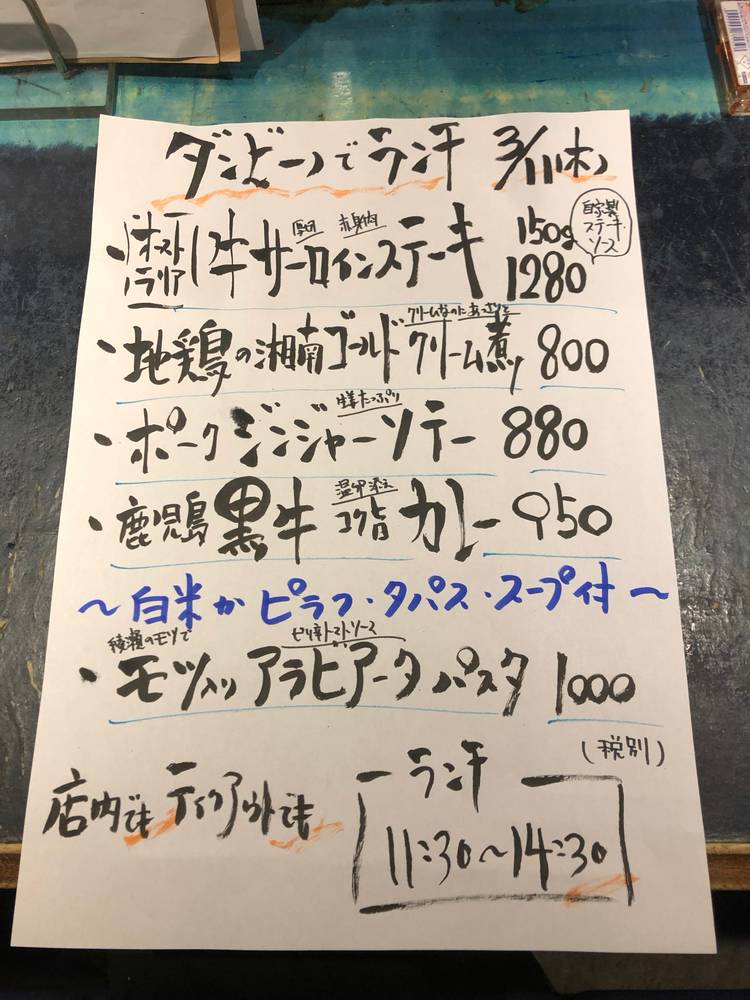 ダンビーノでランチ 3/11(木)
・オーストラリア牛 厚切 赤身肉 サーロインステーキ 150g 1280
自家製ステーキソース
クリームなのにあっさりと
・地鶏の湘南ゴールドクリーム煮 800
生姜たっぷり
・ポークジンジャーソテー 880
温卵添え
・鹿児島黒牛コク旨カレー 950
～白米かピラフ・タパス・スープ付～
綾瀬のモツで ピリ辛トマトソース
・モツ入りアラビアータパスタ 1000
(税別)
店内でもテイクアウトでも
ランチ
11:30～14:30